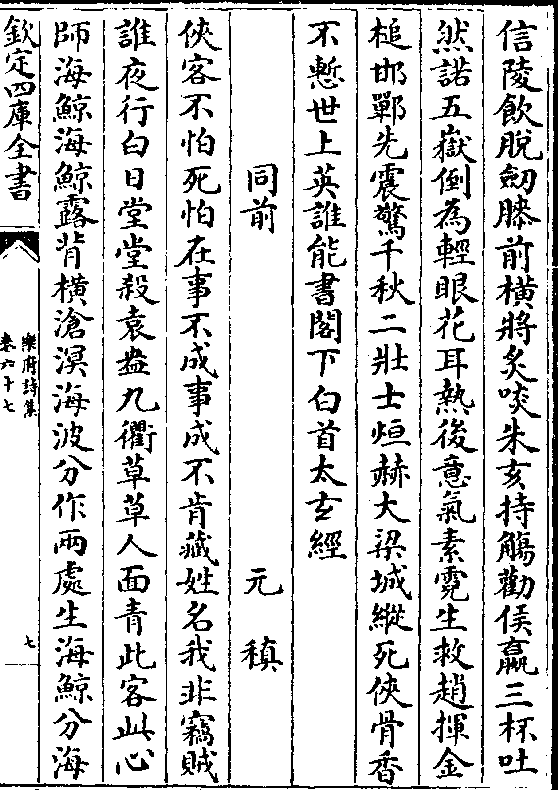 信陵飲脫劒膝前橫將炙啖朱亥持觴勸侯嬴三杯吐
然諾五嶽倒為輕眼花耳熱後意氣素霓生救趙揮金
槌邯鄲先震驚千秋二壯士烜赫大梁城縱死俠骨香
不慙世上英誰能書閣下白首太𤣥經
同前 元稹
俠客不怕死怕在事不成事成不肯藏姓名我非竊賊
誰夜行白日堂堂殺袁盎九衢草草人面青此客此心
師海鯨海鯨露背橫滄溟海波分作兩處生海鯨分海
欽定四庫全書
樂府詩集
卷六十七
七